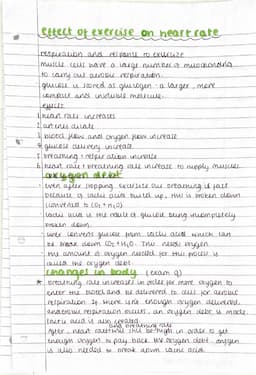 effect of exercise on heart rate
respiration and response to exercise
muscle cells have a large number of mitochondria
to carry out aerobic respiration.
glucose is stored as glycogen - a larger, more
compact and insoluble molecule.
effects
heart rate increases
arteries dilate
blood flow and oxygen flow increase
glucose delivery increase
breathing + respiration increase
heart rate + breathing rate increase to supply muscles
oxygen debt
even after stopping exercise our breathing is fast
because of lactic acid build up, this is broken down
(converted to CO2 + H2O).
lactic acid is the result of glucose being incompletely
broken down.
liver converts glucose from lactic acid which can
be broken down CO2 + H2O. This needs oxygen.
the amount of oxygen needed for this process is
called the oxygen debt
changes in body (exam q)
* breathing rate increases in order for more oxygen to
enter the blood and be delivered to cell for aerobic
respiration. If there isnt enough oxygen delivered,
anaerobic respiration occurs, an oxygen debt is made.
lactic acid is also created.
and breathing rate
After, heart rate will still be high in order to get
enough oxygen to pay back the oxygen debt. oxygen
is also needed to break down lactic acid.